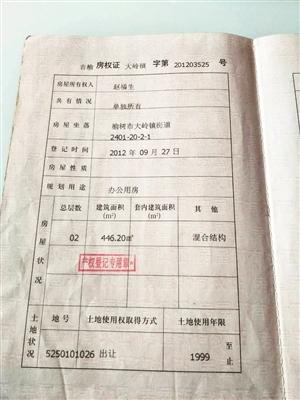 吉榆 房权证 大岭镇 字第 201203525 号
房屋所有权人 赵福生
共有情况 单独所有
房屋坐落 榆树市大岭镇街道
2401-20-2-1
登记时间 2012 年 09 月 27 日
房屋性质
规划用途 办公用房
房屋状况
总层数 建筑面积 套内建筑面积 其他
(m²) (m²)
02 446.20㎡ 混合结构
产权登记专用章
土地状况
地号 土地使用权取得方式 土地使用年限
5250101026 出让 1999 至
止